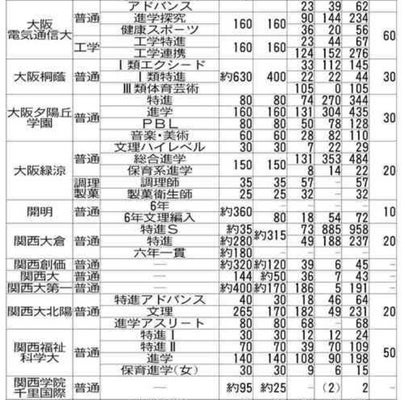 大阪電気通信大 普通 アドバンス 160 160 23 39 62 60
進学探究 90 144 234
健康スポーツ 36 20 56
工学 工学特進 160 160 23 44 67
工学連携 124 152 276
大阪桐蔭 普通 Ⅰ類エクシード 約630 400 33 112 145 30
Ⅰ類特進 22 22 44
Ⅲ類体育芸術 105 0 105
大阪夕陽丘学園 普通 特進 80 80 74 270 344 30
進学 160 160 131 304 435
PBL 80 80 50 78 128
音楽・美術 60 60 28 82 110
大阪緑涼 普通 文理ハイレベル 30 30 7 22 29 20
総合進学 150 150 131 353 484
保育系進学 8 14 22
調理 調理師 35 35 57 — 57
製菓 製菓衛生師 25 25 32 — 32
開明 普通 6年 約360 — — — 10
6年文理編入 80 18 54 72
関西大倉 普通 特進S 約35 約315 73 885 958 20
特進 約280 49 188 237
六年一貫 約180 — — — —
関西創価 普通 — 約320 約120 39 6 45
関西大 普通 — 144 約50 36 7 43
関西大第一 普通 — 約400 約170 186 5 191
関西大北陽 普通 特進アドバンス 40 30 18 46 64 20
文理 265 170 182 49 231
進学アスリート 80 80 68 — 68
関西福祉科学大 普通 特進Ⅰ 30 30 12 12 24 50
特進Ⅱ 70 70 39 70 109
進学 140 140 108 90 198
保育進学(女) 30 30 9 6 15
関西学院千里国際 普通 — 約95 約25 — (2) 2